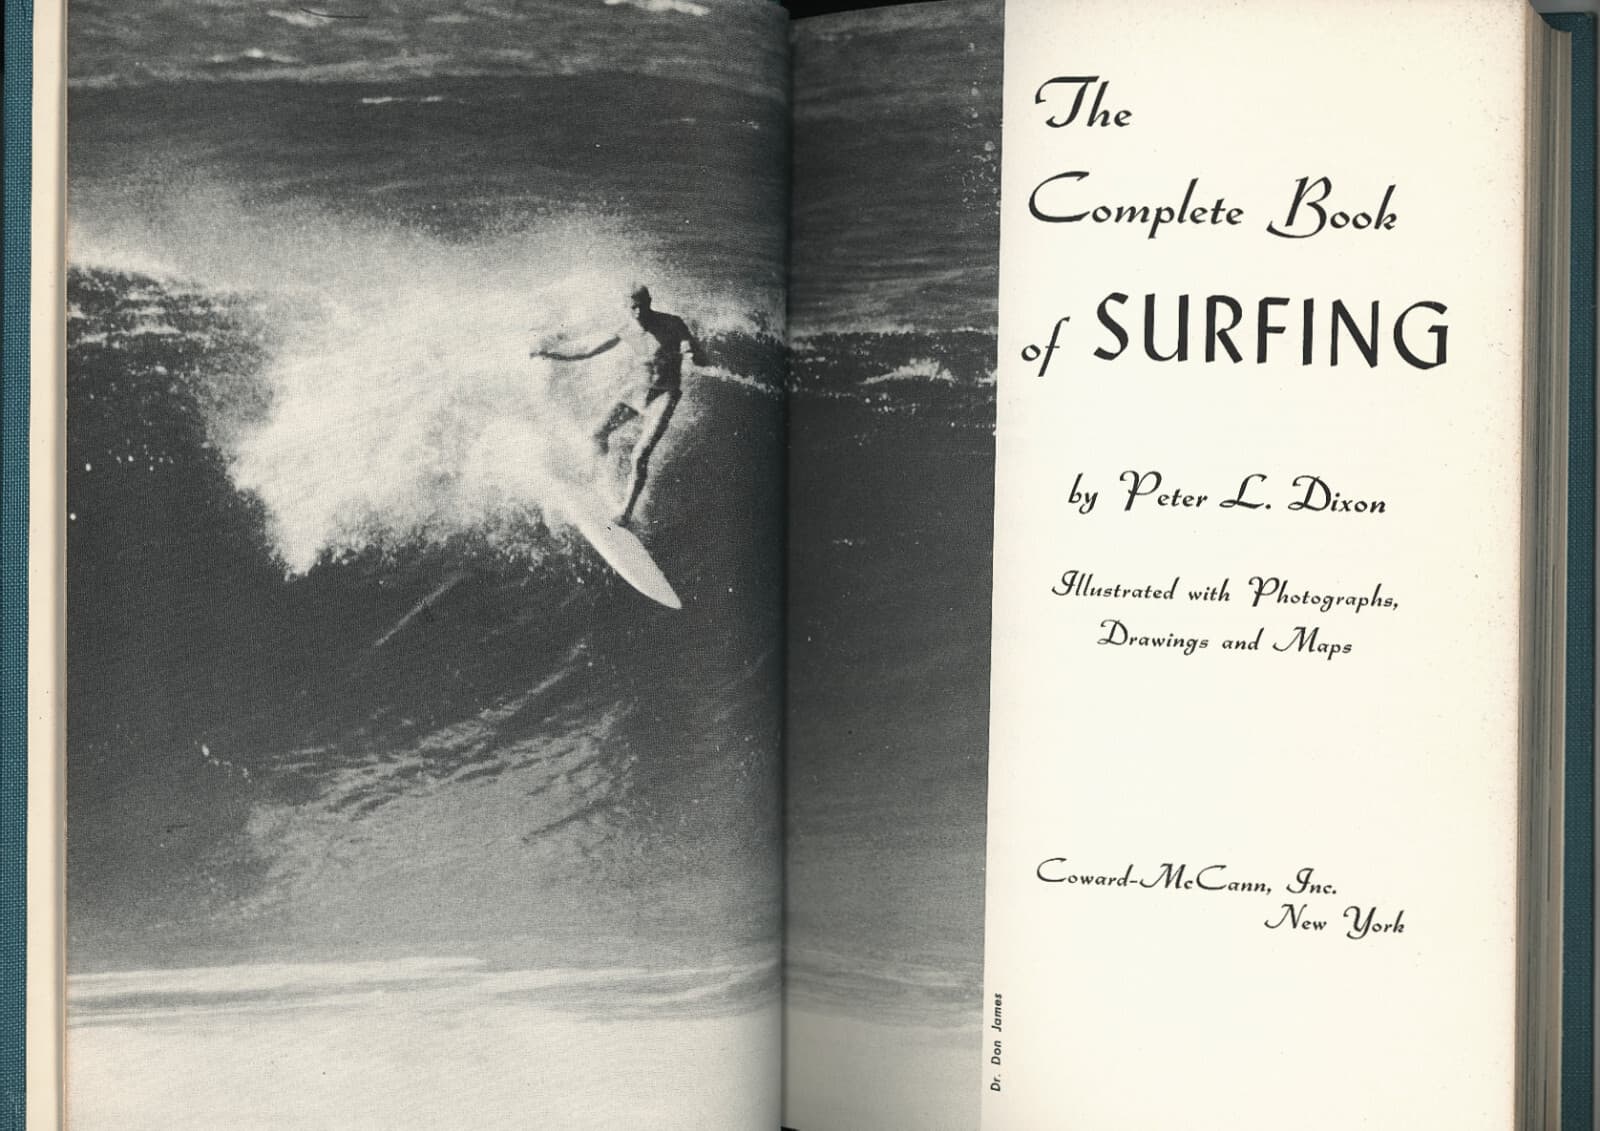 The
Complete Book
of SURFING
by Peter L. Dixon
Illustrated with Photographs,
Drawings and Maps
Coward-McCann, Inc.
New York
Dr. Don James